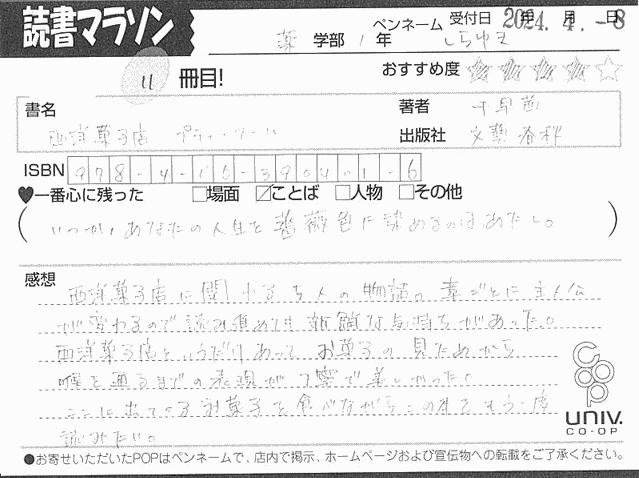 読書マラソン
ペンネーム 受付日 2024.4.-8 年 月 日
薬 学部 1 年 しらゆき
11 冊目!
おすすめ度 ★★★★☆
書名 著者 千早茜
西洋菓子店 プティ・フール 出版社 文藝春秋
ISBN 978-4-16-3904-01-6
♥一番心に残った □場面 ☑ことば □人物 □その他
(いつか、あなたの人生を薔薇色に染めるのはあたし。)
感想
西洋菓子店に関わる5人の物語。章ごとに主人公
が変わるので読み進めても新鮮な気持ちがあった。
西洋菓子店というだけあって お菓子の見ためから
喉を通るまでの表現が丁寧で美しかった。
ここに出てくるお菓子を食べながらこの本をもう一度
読みたい。
coop
UNIV.
CO-OP
●お寄せいただいたPOPはペンネームで、店内で掲示、ホームページおよび宣伝物への転載をご了承ください。